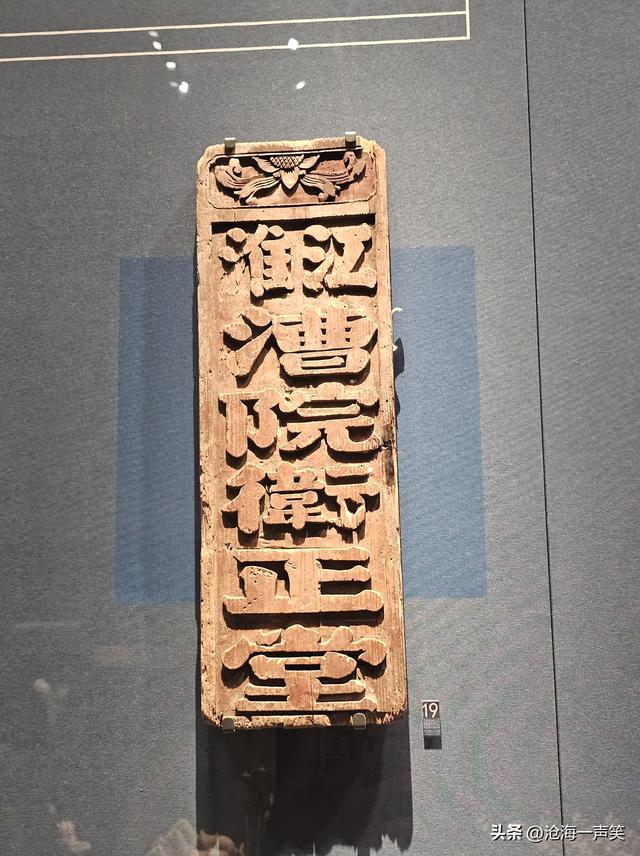 江淮漕院衛正堂
19
头条 @沧海一声笑